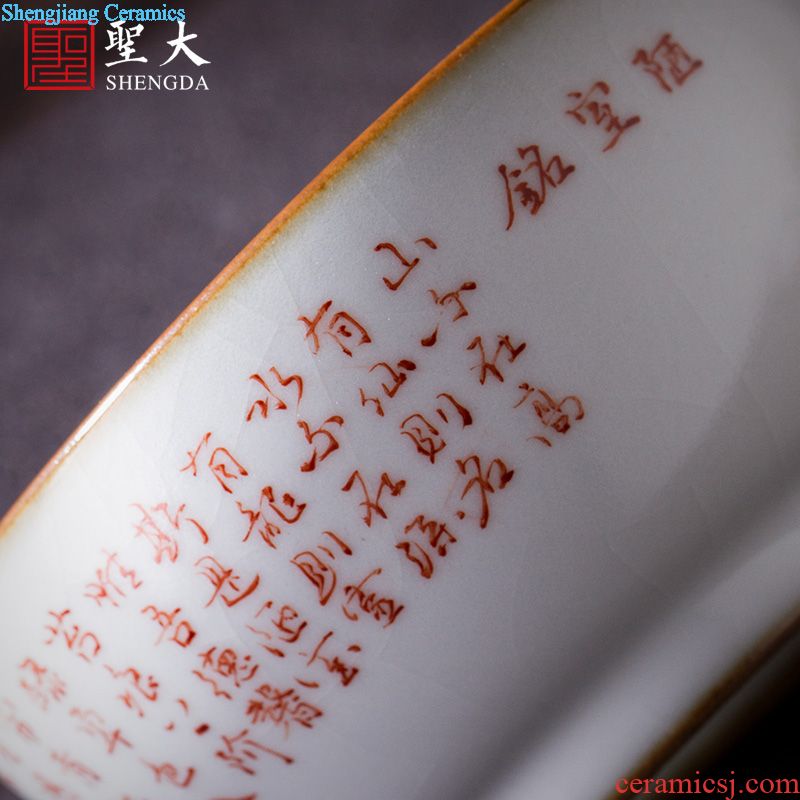 Shengjiang Ceramics
聖大
SHENGDA
陋室銘
山不在高
有仙則名
水不在深
有龍則靈
斯是陋室
惟吾德馨
苔痕上階
綠草色
ceramicsj.com